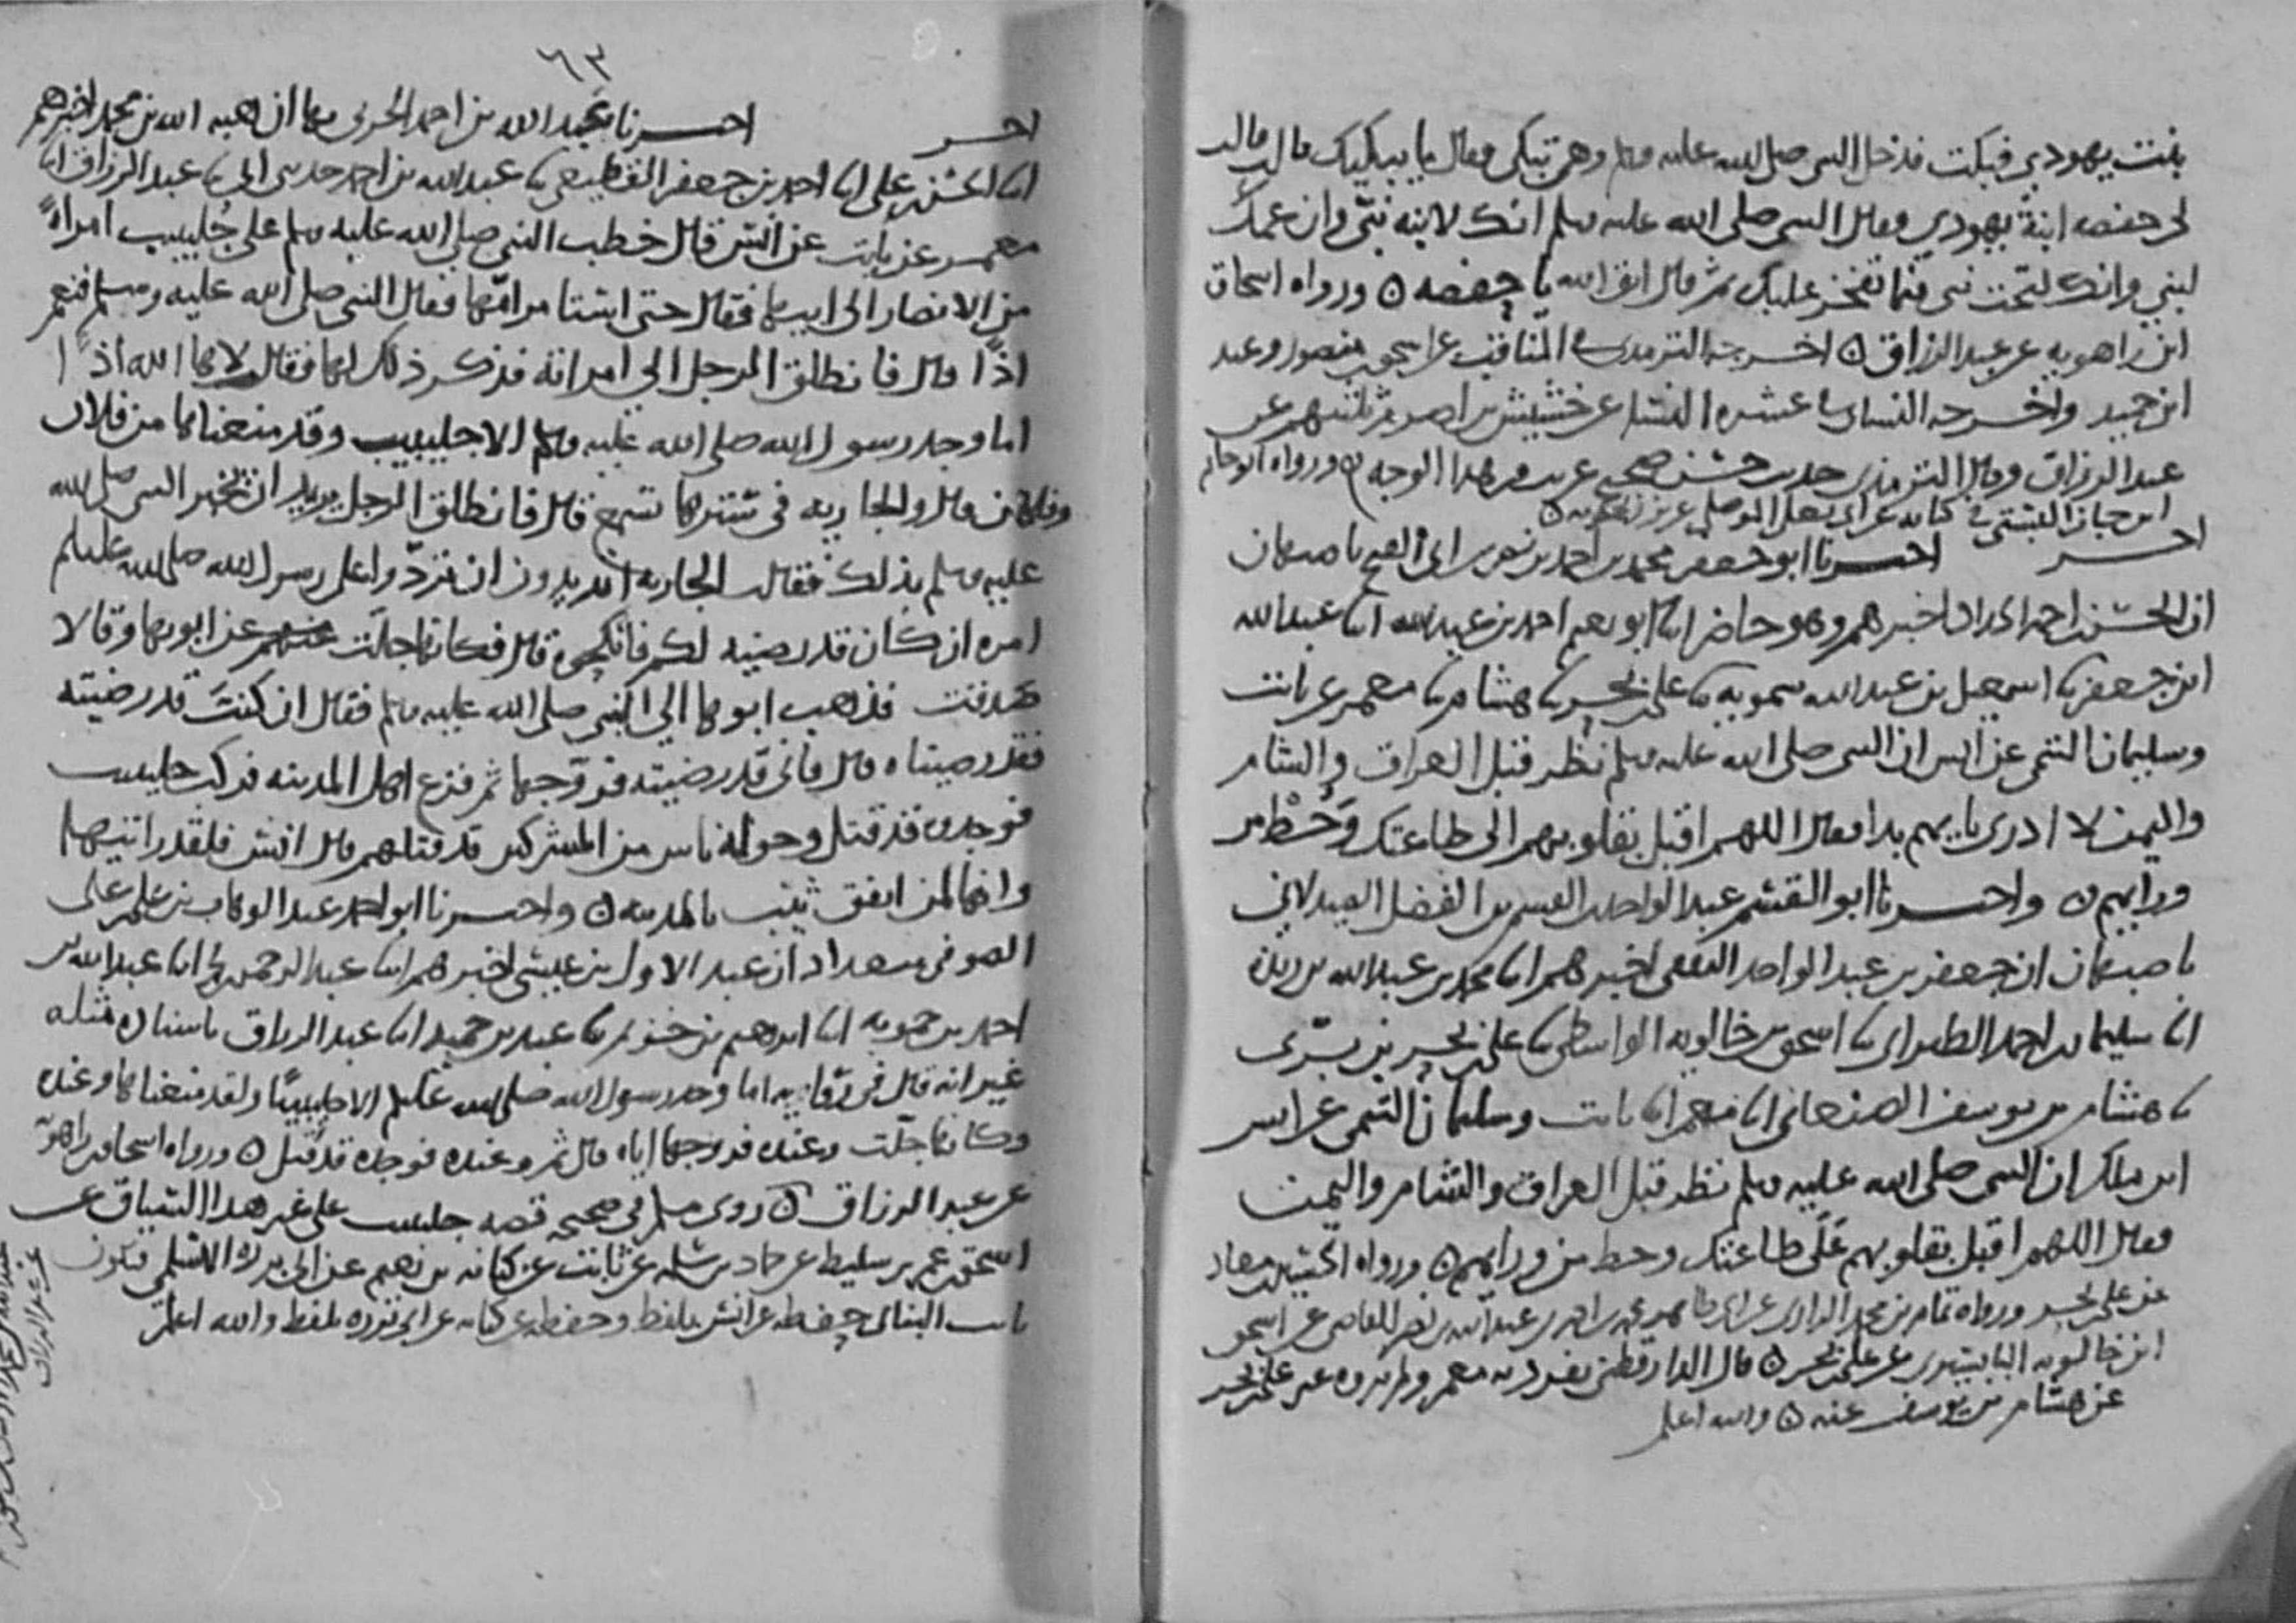 بنت يهودي فبكت فدخل النبي صلى الله عليه وسلم وهي تبكي فقال ما يبكيك قالت قالت
لي حفصه ابنة يهودي فقال النبي صلى الله عليه وسلم انك لابنة نبي وان عمك
لنبي وانك لتحت نبي فبما تفخر عليك ثم قال اتق الله يا حفصه ورواه اسحاق
ابن راهويه عن عبد الرزاق اخرجه الترمذي في المناقب عن اسحق بن منصور وعبد
ابن حميد واخرجه النسائي في عشرة النساء عن خشيش بن اصرم ثلثتهم عن
عبد الرزاق وقال الترمذي حديث حسن صحيح غريب من هذا الوجه ورواه ابو حاتم
ابن حبان البستي في كتابه عن ابي يعلى الموصلي عن ابن زنجويه
اخر اخبرنا ابو جعفر محمد بن احمد بن نصر بن ابي الفتح باصبهان
ان الحسن بن احمد الحداد اخبرهم وهو حاضر انا ابو نعيم احمد بن عبد الله انا عبد الله
ابن جعفر نا اسمعيل بن عبد الله سمويه نا علي بن بحر نا هشام نا معمر عن ثابت
وسليمان التيمي عن انس ان النبي صلى الله عليه وسلم نظر قبل العراق والشام
واليمن لا ادري بايهم بدا فقال اللهم اقبل بقلوبهم الى طاعتك وحط من
ورايهم واخبرنا ابو القسم عبد الواحد بن القسم بن الفضل الصيدلاني
باصبهان ان جعفر بن عبد الواحد الثقفي اخبرهم انا محمد بن عبد الله بن ريذه
انا سليمان بن احمد الطبراني نا اسحق بن خالويه الواسطي نا علي بن بحر بن بري
نا هشام بن يوسف الصنعاني انا معمر انا ثابت وسليمان التيمي عن انس
ابن ملك ان النبي صلى الله عليه وسلم نظر قبل العراق والشام واليمن
فقال اللهم اقبل بقلوبهم على طاعتك وحط من ورايهم ورواه الحسين بن معاذ
عن علي بن بحر ورواه تمام بن محمد الرازي عن ابي طاهر محمد بن احمد بن عبد الله بن نصر القاضي عن اسحق
ابن خالويه البابسيري عن علي بن بحر قال الدارقطني تفرد به معمر ولم يروه عنه غير علي بن بحر
عن هشام بن يوسف عنه والله اعلم
٦٣
اخر اخبرنا عبد الله بن احمد الحربي بها ان هبة الله بن محمد اخبرهم
انا الحسن بن علي انا احمد بن جعفر القطيعي نا عبد الله بن احمد حدثني ابي نا عبد الرزاق انا
معمر عن ثابت عن انس قال خطب النبي صلى الله عليه وسلم على جليبيب امراة
من الانصار الى ابيها فقال حتى استامر امها فقال النبي صلى الله عليه وسلم فنعم
اذا قال فانطلق الرجل الى امراته فذكر ذلك لها فقالت لاها الله اذا
اما وجد رسول الله صلى الله عليه وسلم الا جليبيب وقد منعناها من فلان
وفلان قال والجاريه في سترها تسمع قال فانطلق الرجل يريد ان يخبر النبي صلى الله
عليه وسلم بذلك فقالت الجاريه اتريدون ان تردوا على رسول الله صلى الله عليه وسلم
امره ان كان قد رضيه لكم فانكحوه قال فكانها جلت عن ابويها وقالا
صدقت فذهب ابوها الى النبي صلى الله عليه وسلم فقال ان كنت قد رضيته
فقد رضيناه قال فاني قد رضيته فزوجها ثم فزع اهل المدينه فركب جليبيب
فوجدوه قد قتل وحوله ناس من المشركين قد قتلهم قال انس فلقد رايتها
وانها لمن انفق ثيب بالمدينه واخبرنا ابو احمد عبد الوهاب بن علي بن علي
الصوفي ببغداد ان عبد الاول بن عيسى اخبرهم انا عبد الرحمن بن محمد انا عبد الله بن
احمد بن حمويه انا ابرهيم بن خزيم نا عبد بن حميد انا عبد الرزاق باسناده مثله
غير انه قال في روايته اما وجد رسول الله صلى الله عليه وسلم الا جليبيبا ولقد منعناها وعنده
وكانها جلت وعنده فزوجها اياه قال ثم وعنده فوجده قد قتل ورواه اسحاق بن راهويه
عن عبد الرزاق روى مسلم في صحيحه قصه جليبيب على غير هذا السياق عن
اسحق بن عمر بن سليط عن حماد بن سلمه عن ثابت عن كنانه بن نعيم عن ابي برزه الاسلمي فيكون
ثابت البناني حفظه عن انس بلفظ وحفظه عن كنانه عن ابي برزه بلفظ والله اعلم